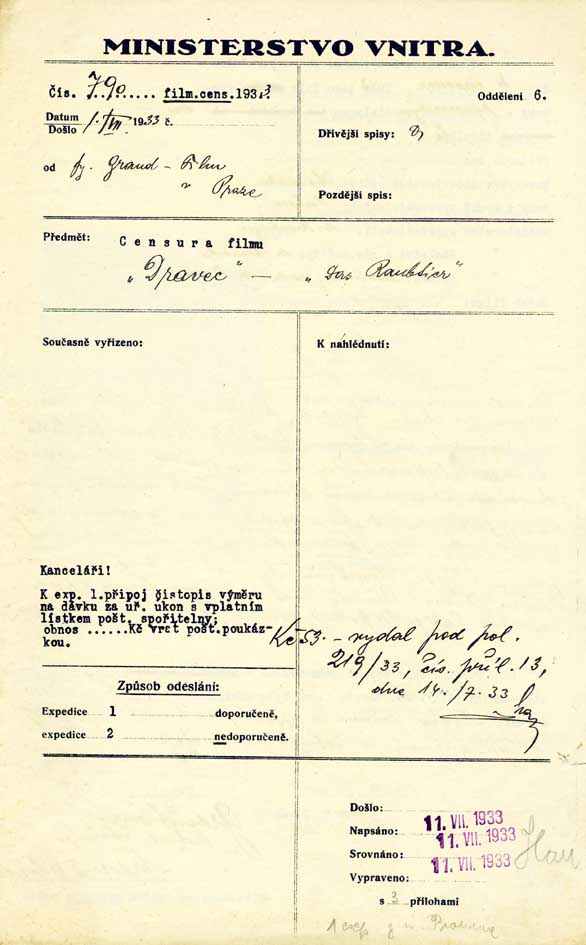 MINISTERSTVO VNITRA.
Čís. 790 film.cens.1933.
Oddělení 6.
Datum
Došlo 1. VII 1933 č.
Dřívější spisy:
od fy. Grand-Film
v Praze
Pozdější spis:
Předmět: Censura filmu
„Dravec“ — „Das Raubtier“
Současně vyřízeno:
K náhlédnutí:
Kanceláři!
K exp. 1.připoj čistopis výměru
na dávku za uř. ukon s vplatním
lístkem pošt. spořitelny;
obnos ......Kč vrat pošt.poukáz-
kou.
Kč 53.- vydal pod pol.
219/33, čís. příl. 13,
dne 14./7. 33
Způsob odeslání:
Expedice 1 doporučeně,
expedice 2 nedoporučeně.
Došlo:
Napsáno: 11. VII. 1933
Srovnáno: 11. VII. 1933
Vypraveno: 11. VII. 1933
s 3 přílohami